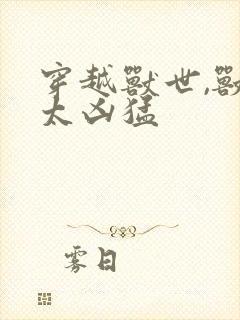 穿越獸世,獸
太凶猛
雾日